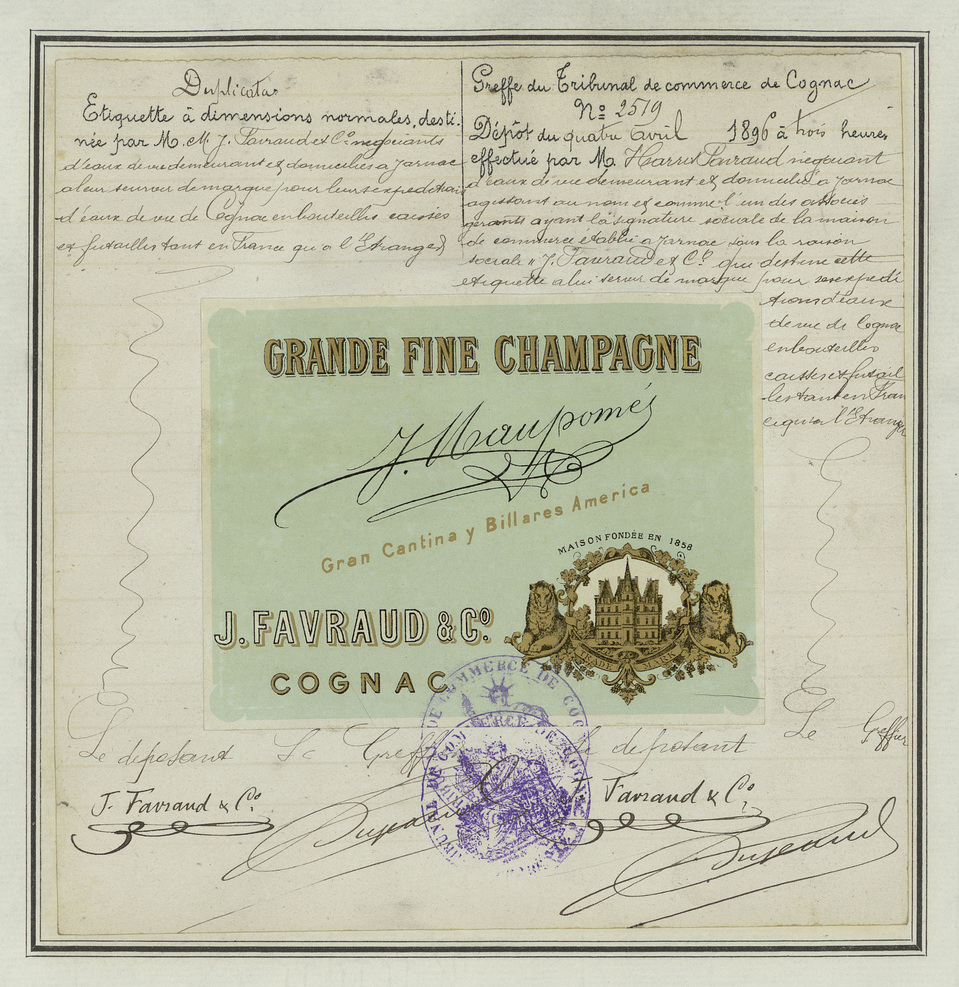 Duplicata
Etiquette à dimensions normales, desti-
née par M. M. J. Favraud et Co négociants
d'eaux de vie demeurant et domiciliés a Jarnac
a leur servir de marque pour leurs expeditions
d'eaux de vie de Cognac en bouteilles caisses
et futailles tant en France qu'a l'Etranger
Greffe du Tribunal de commerce de Cognac
No 2519
Dépôt du quatre avril 1896 à trois heures
effectué par M. Favraud negociant
d'eaux de vie demeurant et domicilié a Jarnac
agissant au nom et comme l'un des associés
gerants ayant la signature sociale de la maison
de commerce établie a Jarnac sous la raison
sociale "J. Favraud et Co. qui destine cette
etiquette a lui servir de marque pour ses expedi
tions d'eaux
de vie de Cognac
en bouteilles
caisses et futail
les tant en Fran
ce qu'a l'Etranger
GRANDE FINE CHAMPAGNE
J. Maupomé
Gran Cantina y Billares America
MAISON FONDÉE EN 1858
J. FAVRAUD & Co.
TRADE MARK
COGNAC
TRIBUNAL DE COMMERCE DE COGNAC
Le deposant Le Greffier Le deposant Le Greffier
J. Favraud & Co. J. Favraud & Co.